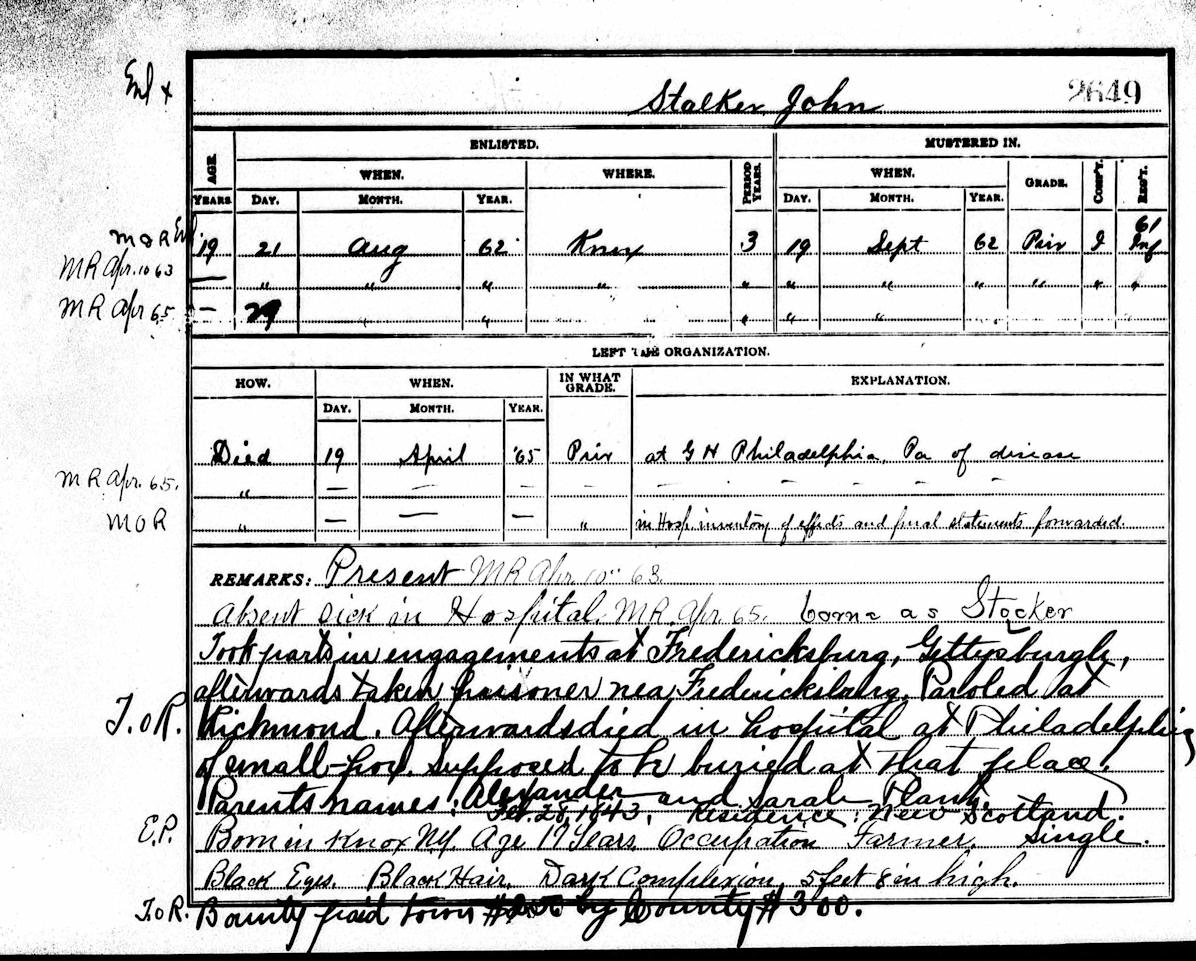 Enl x
Stalker, John 2649
ENLISTED. MUSTERED IN.
AGE WHEN. WHERE. PERIOD YEARS. WHEN. GRADE. COMP'Y. REG'T.
YEARS. DAY. MONTH. YEAR. DAY. MONTH. YEAR.
M&R Enl 19 21 Aug 62 Knox 3 19 Sept 62 Priv I 61 Inf
MR Apr. 10 63 — " " " " " " " " " " "
MR Apr 65 — 29 " " " " " "
LEFT THE ORGANIZATION.
HOW. WHEN. IN WHAT GRADE. EXPLANATION.
DAY. MONTH. YEAR.
Died 19 April '65 Priv at G H Philadelphia, Pa of disease
MR Apr. 65. " — — — — - - - - - -
MOR " — — — " in Hosp. inventory of effects and final statements forwarded.
REMARKS: Present MR Apr 10" 63.
Absent sick in Hospital. MR Apr. 65. borne as Stocker
Took parts in engagements at Fredericksburg, Gettysburgh,
afterwards taken prisoner near Fredericksburg. Paroled at
T.o R. Richmond. Afterwards died in hospital at Philadelphia
of small-pox. Supposed to be buried at that place.
Parents names: Alexander and Sarah Plank.
Feb. 28, 1843. Residence: New Scotland.
E.P. Born in Knox N.Y. Age 19 Years. Occupation Farmer. Single.
Black Eyes. Black Hair. Dark Complexion, 5 feet 8 in high.
T.o R. Bounty paid town by County $300.